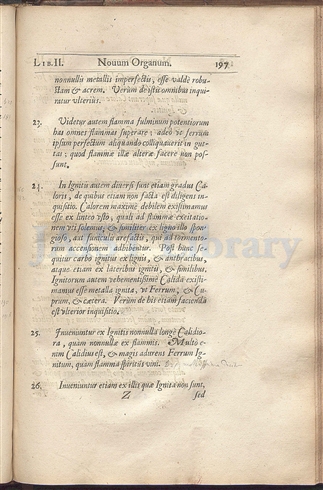 LIB. II. Nouum Organum. 197
nonnullis metallis imperfectis, esse valdè robu-
stam & acrem. Verùm de istis omnibus inqui-
ratur vlteriùs.
23. Videtur autem flamma fulminum potentiorum
has omnes flammas superare; adeò vt ferrum
ipsum perfectum aliquando colliquauerit in gut-
tas; quod flammæ illæ alteræ facere non pos-
sunt.
24. In Ignitis autem diuersi sunt etiam gradus Ca-
loris, de quibus etiam non facta est diligens in-
quisitio. Calorem maximè debilem existimamus
esse ex linteo vsto, quali ad flammæ excitatio-
nem vti solemus; & similiter ex ligno illo spon-
gioso, aut funiculis arefactis, qui ad tormento-
rum accensionem adhibentur. Post hunc se-
quitur carbo ignitus ex lignis, & anthracibus,
atque etiam ex lateribus ignitis, & similibus.
Ignitorum autem vehementissimè Calida existi-
mamus esse metalla ignita, vt Ferrum, & Cu-
prum, & cætera. Verùm de his etiam facienda
est vlterior inquisitio.
25. Inueniuntur ex Ignitis nonnulla longè Calidio-
ra, quàm nonnullæ ex flammis. Multò e-
nim Calidius est, & magis adurens Ferrum Ig-
nitum, quàm flamma spiritûs vini.
26. Inueniuntur etiam ex illis quæ Ignita non sunt,
Z sed
Library